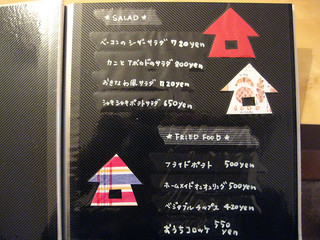 ★ SALAD ★
ベーコンのシーザーサラダ 720yen
カニとアボカドのサラダ 800yen
おきなわ風サラダ 720yen
シャキシャキポテトサラダ 650yen
★ FRIED FOOD ★
フライドポテト 500yen
ホームメイドオニオンリング 500yen
ベジタブルチップス 420yen
おうちコロッケ 550yen